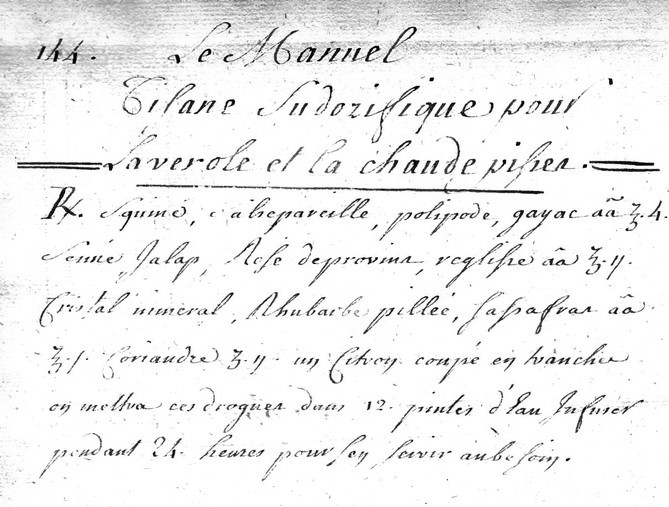 144. Le Manuel
Tisane Sudorifique pour
Laverole et la chaude pisser.
℞. Squine, salsepareille, polipode, gayac aã ʒ. 4.
Senné, Jalap, Rose deprovins, reglisse aã ʒ. ij.
Cristal mineral, Rhubarbe pillée, sassafras aã
ʒ. j. Coriandre ʒ. ij. un Citron coupé en tranches
on mettra ces drogues dans 12. pintes d'Eau Infuser
pendant 24. heures pour sen servir aubesoin.